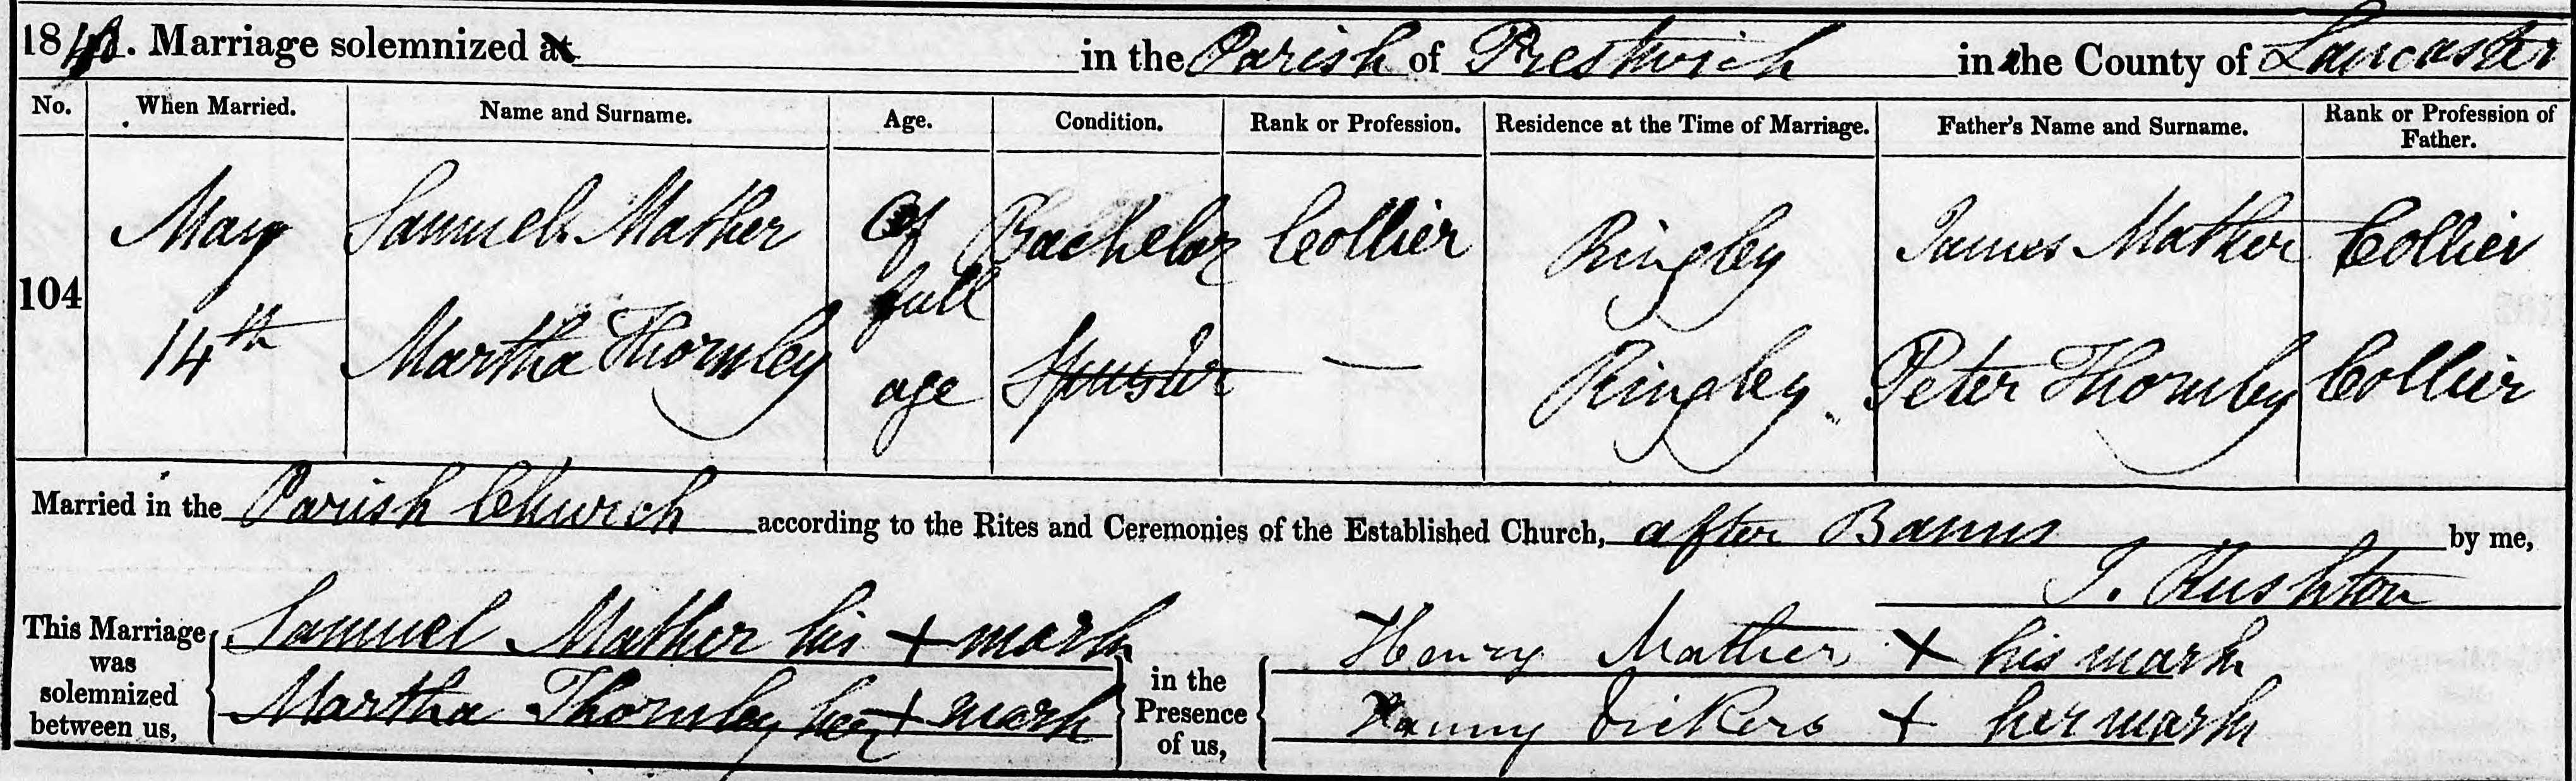 18 . Marriage solemnized at in the Parish of Prestwich in the County of Lancaster
No. When Married. Name and Surname. Age. Condition. Rank or Profession. Residence at the Time of Marriage. Father's Name and Surname. Rank or Profession of Father.
104 May Samuel Mather Of Bachelor Collier Ringley James Mather Collier
full
14th Martha Thornley age Spinster — Ringley Peter Thornley Collier
Married in the Parish Church according to the Rites and Ceremonies of the Established Church, after Banns by me,
J. Rushton
This Marriage was solemnized between us, Samuel Mather his + mark
Martha Thornley her + mark
in the Presence of us, Henry Mather + his mark
Fanny Vickers + her mark